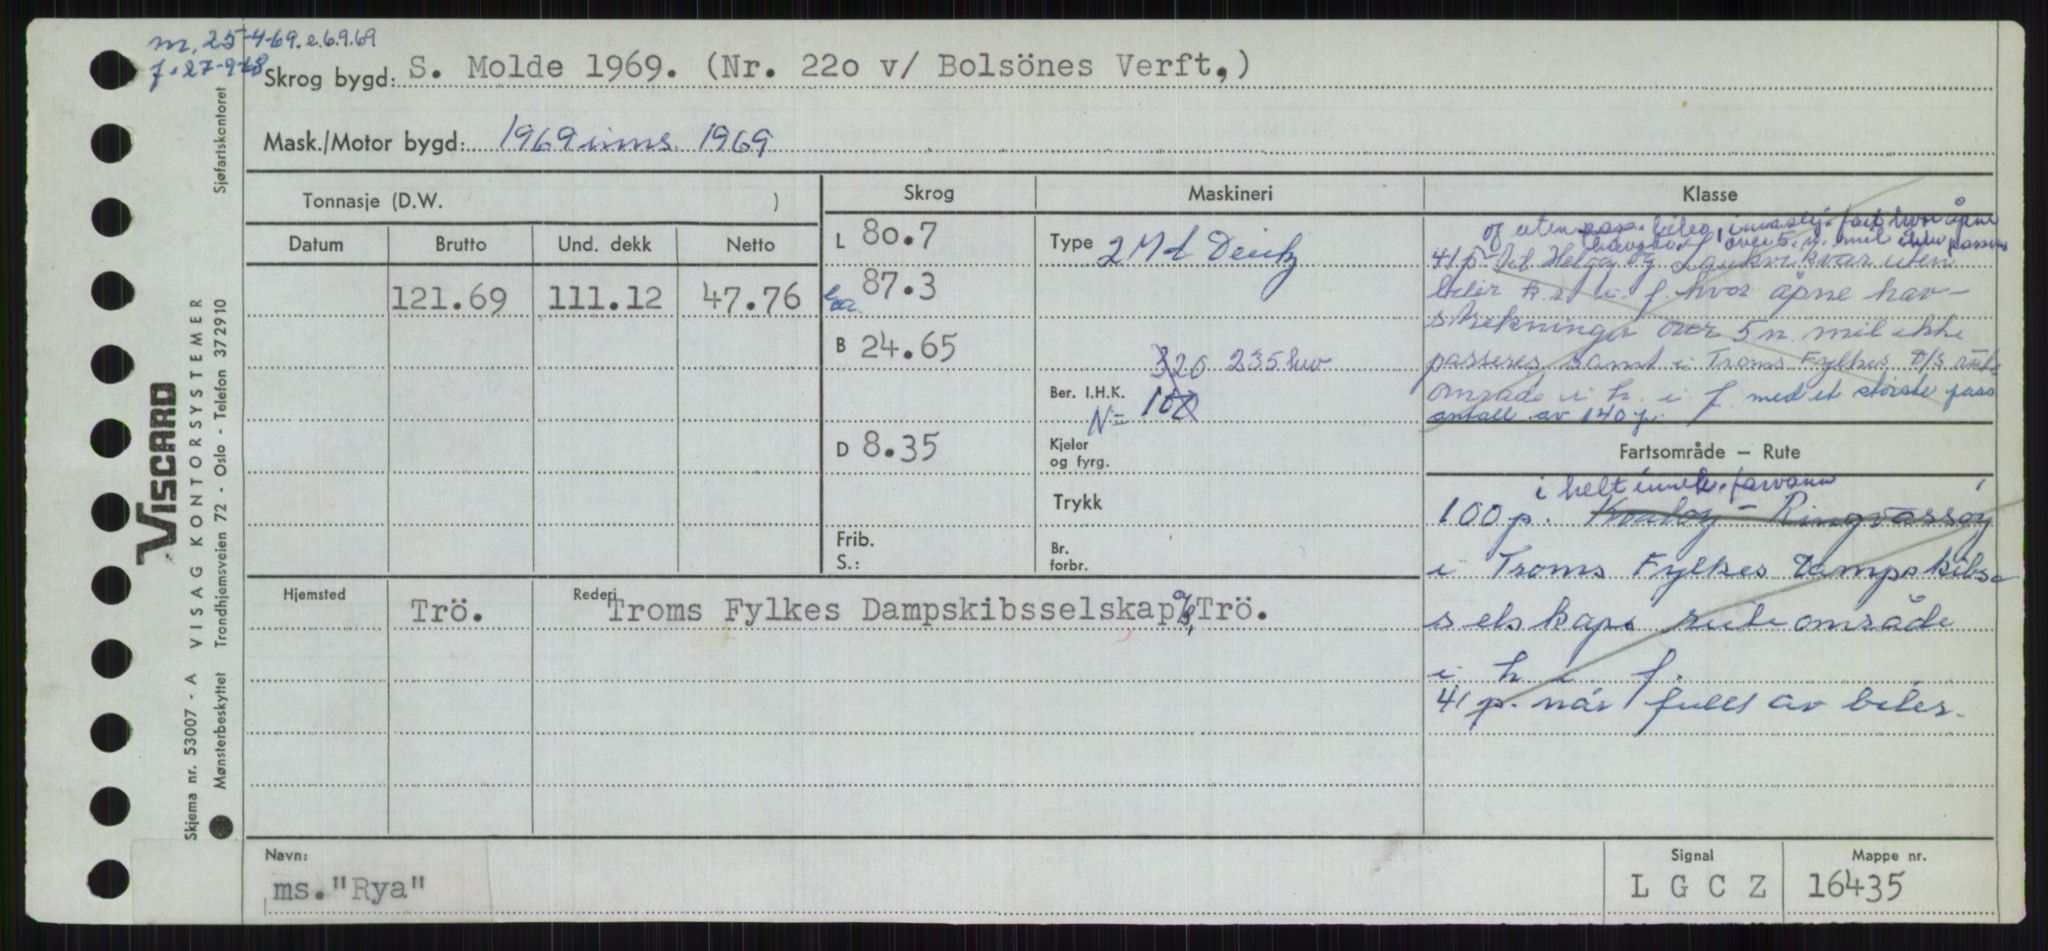 m. 25-4-69. e.6.9.69
f. 27-9-68
Skrog bygd: S. Molde 1969. (Nr. 22o v/ Bolsönes Verft,)
Mask./Motor bygd: 1969 inns. 1969
Tonnasje (D.W. )
Skrog
Maskineri
Klasse
Datum
Brutto
Und. dekk
Netto
121.69
111.12
47.76
L 80.7
loa. 87.3
B 24.65
D 8.35
Frib.
S.:
Type 2 Md Deutz
320 235 hw
Ber. I.H.K.
N= 100
Kjeler
og fyrg.
Trykk
Br.
forbr.
og uten biler, fart hvor åpne
over 5 n. mil ikke
41 p. til Helgøy og uten
biler h. i. f. hvor åpne hav-
strekninger over 5 n. mil ikke
passeres samt i Troms Fylkes D/S rute
område i h. i f. med et største pass
antall av 140 p.
Fartsområde – Rute
i helt innel. farvann
100 p. Kvaløy - Ringvassøy
i Troms Fylkes Dampskibs-
selskaps ruteområde
i h i f.
41 p. når full av biler.
Hjemsted
Trö.
Rederi
Troms Fylkes Dampskibsselskap A/S, Trö.
Navn:
ms."Rya"
Signal
L G C Z
Mappe nr.
16435
VISCARD
Skjema nr. 53007 - A VISAG KONTORSYSTEMER
Mønsterbeskyttet Trondhjemsveien 72 - Oslo - Telefon 372910 Sjøfartskontoret